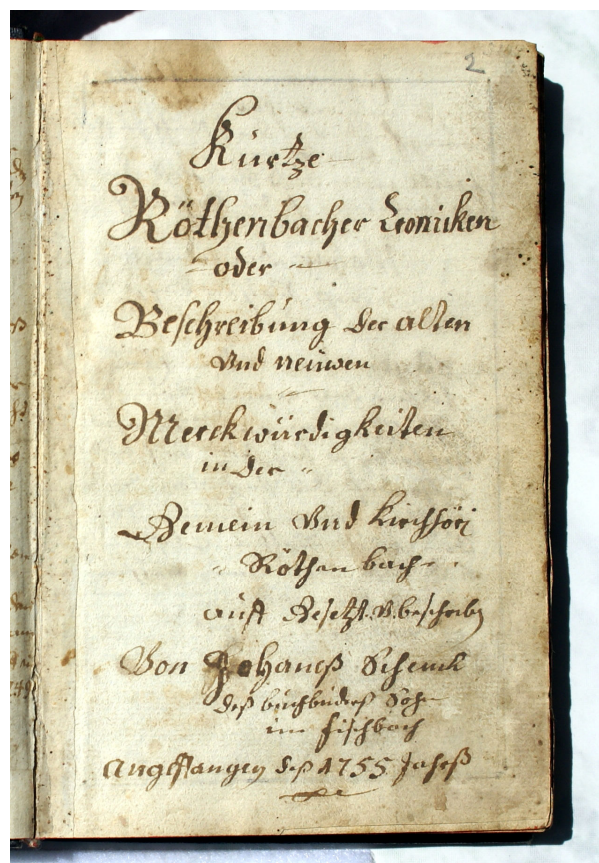 2
Kurtze
Röthenbacher Cronicken
oder
Beschreibung der alten
Vnd neuwen
Merckwürdigkeiten
in der
Gemein Vnd Kirchhöri
Röthenbach
auff Gesetzt. V. beschriben
Von Johaneß Schenck
deß buchbinderß Sohn
im fischbach
angeffangen deß 1755 Jahrß